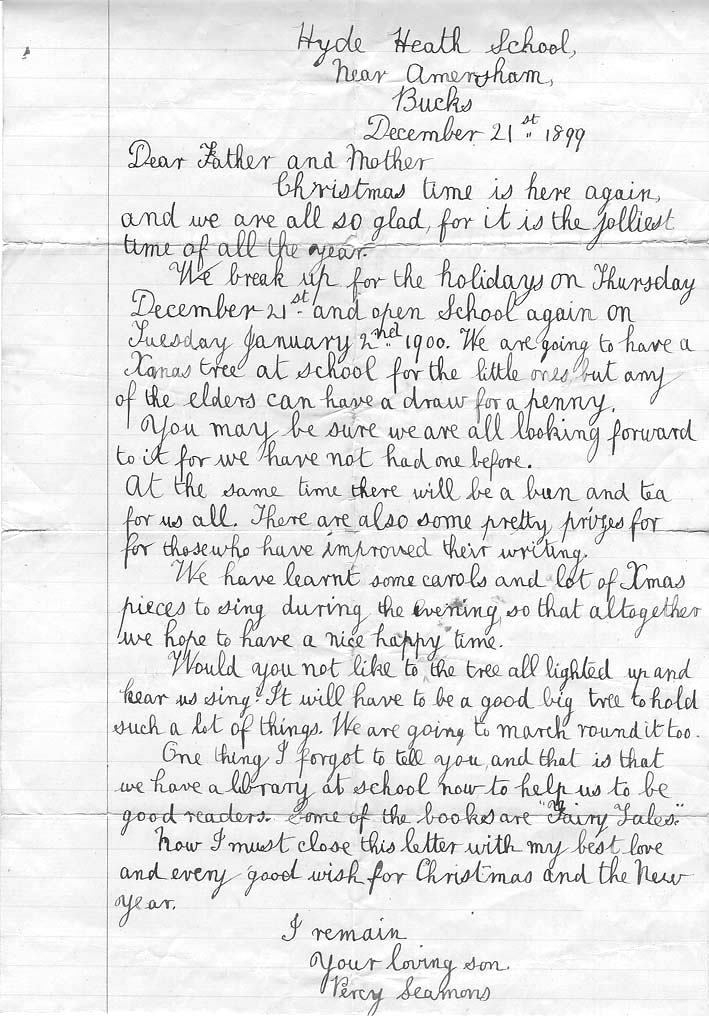 Hyde Heath School,
Near Amersham,
Bucks
December 21st 1899
Dear Father and Mother
Christmas time is here again,
and we are all so glad, for it is the jolliest
time of all the year.
We break up for the holidays on Thursday
December 21st and open School again on
Tuesday January 2nd 1900. We are going to have a
Xmas tree at school for the little ones, but any
of the elders can have a draw for a penny.
You may be sure we are all looking forward
to it for we have not had one before.
At the same time there will be a bun and tea
for us all. There are also some pretty prizes for
for those who have improved their writing.
We have learnt some carols and lot of Xmas
pieces to sing during the evening, so that altogether
we hope to have a nice happy time.
Would you not like to the tree all lighted up and
hear us sing? It will have to be a good big tree to hold
such a lot of things. We are going to march round it too.
One thing I forgot to tell you, and that is that
we have a library at school now to help us to be
good readers. Some of the books are "Fairy Tales."
Now I must close this letter with my best love
and every good wish for Christmas and the New
Year.
I remain
Your loving son.
Percy Seamons